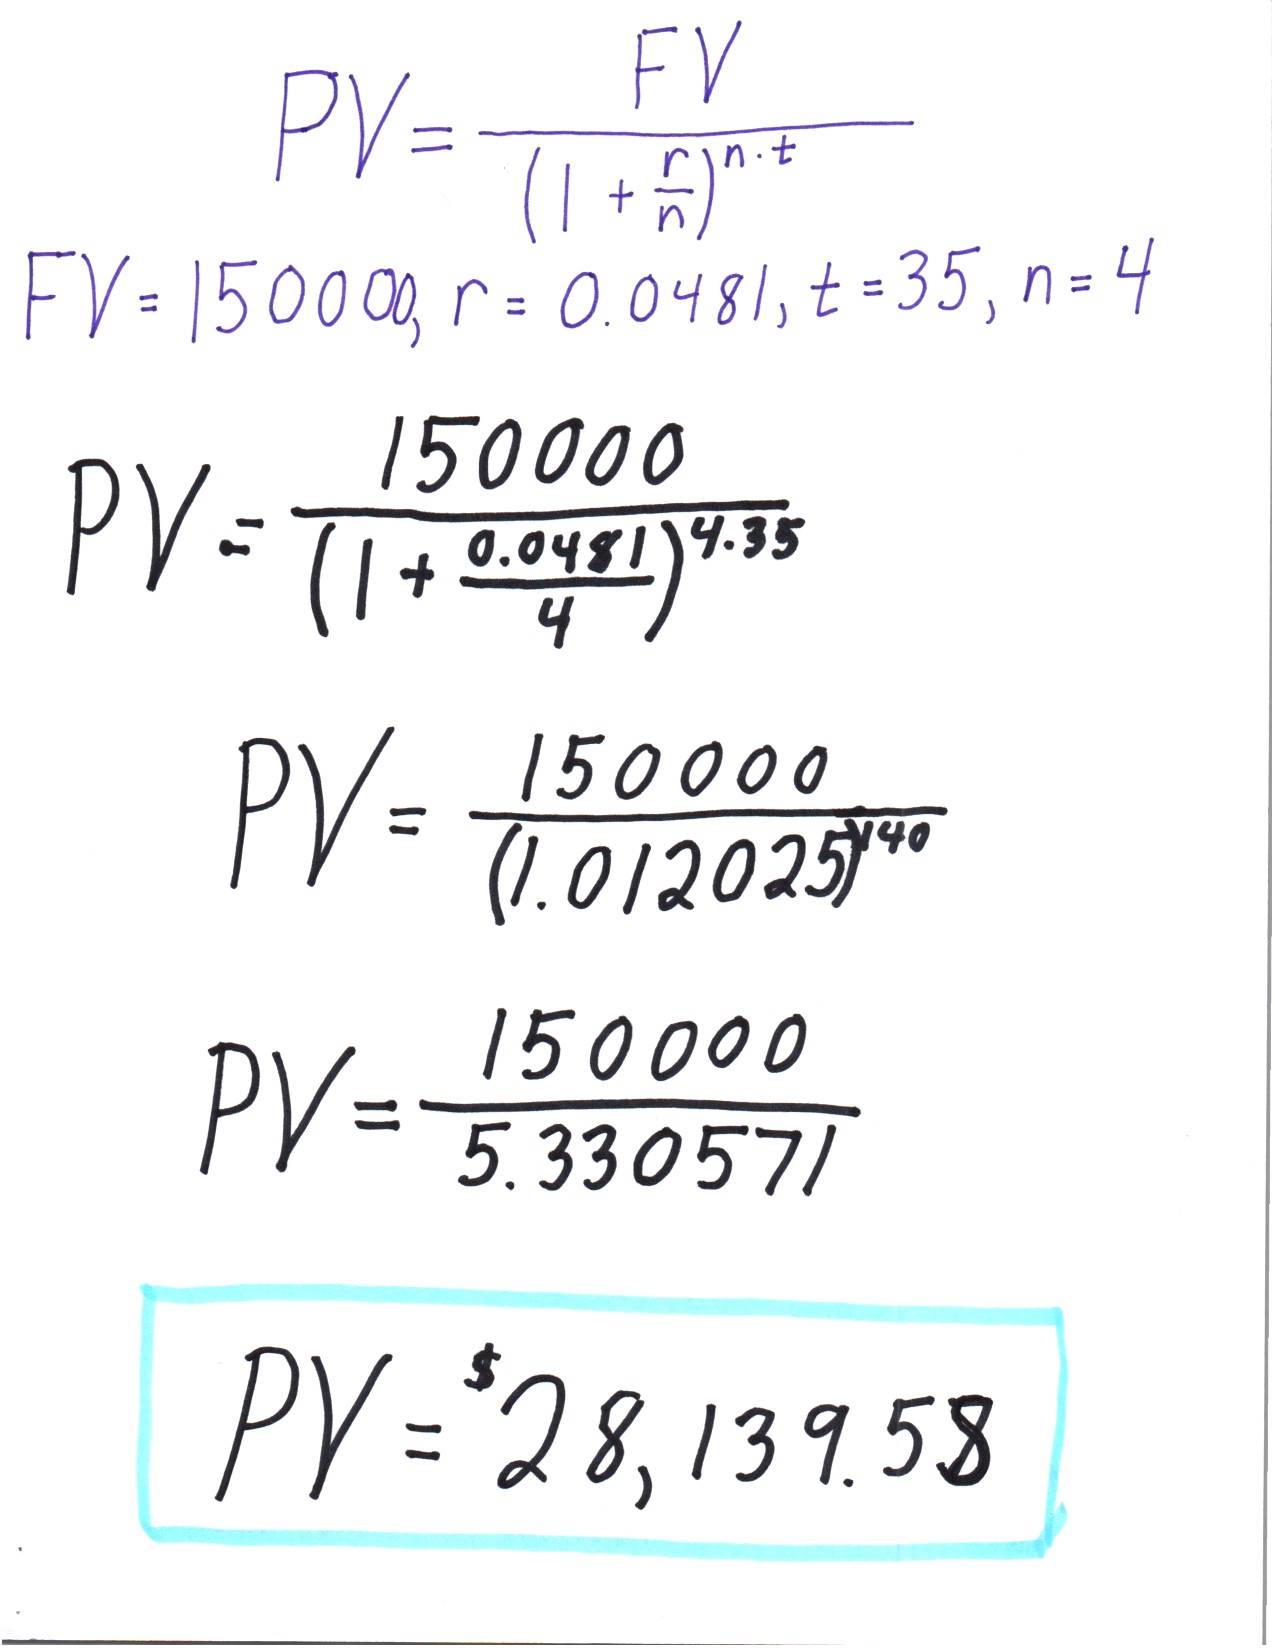 PV = FV / (1 + r/n)^n·t
FV = 150000, r = 0.0481, t = 35, n = 4
PV = 150000 / (1 + 0.0481/4)^4·35
PV = 150000 / (1.012025)^140
PV = 150000 / 5.330571
PV = $28,139.58